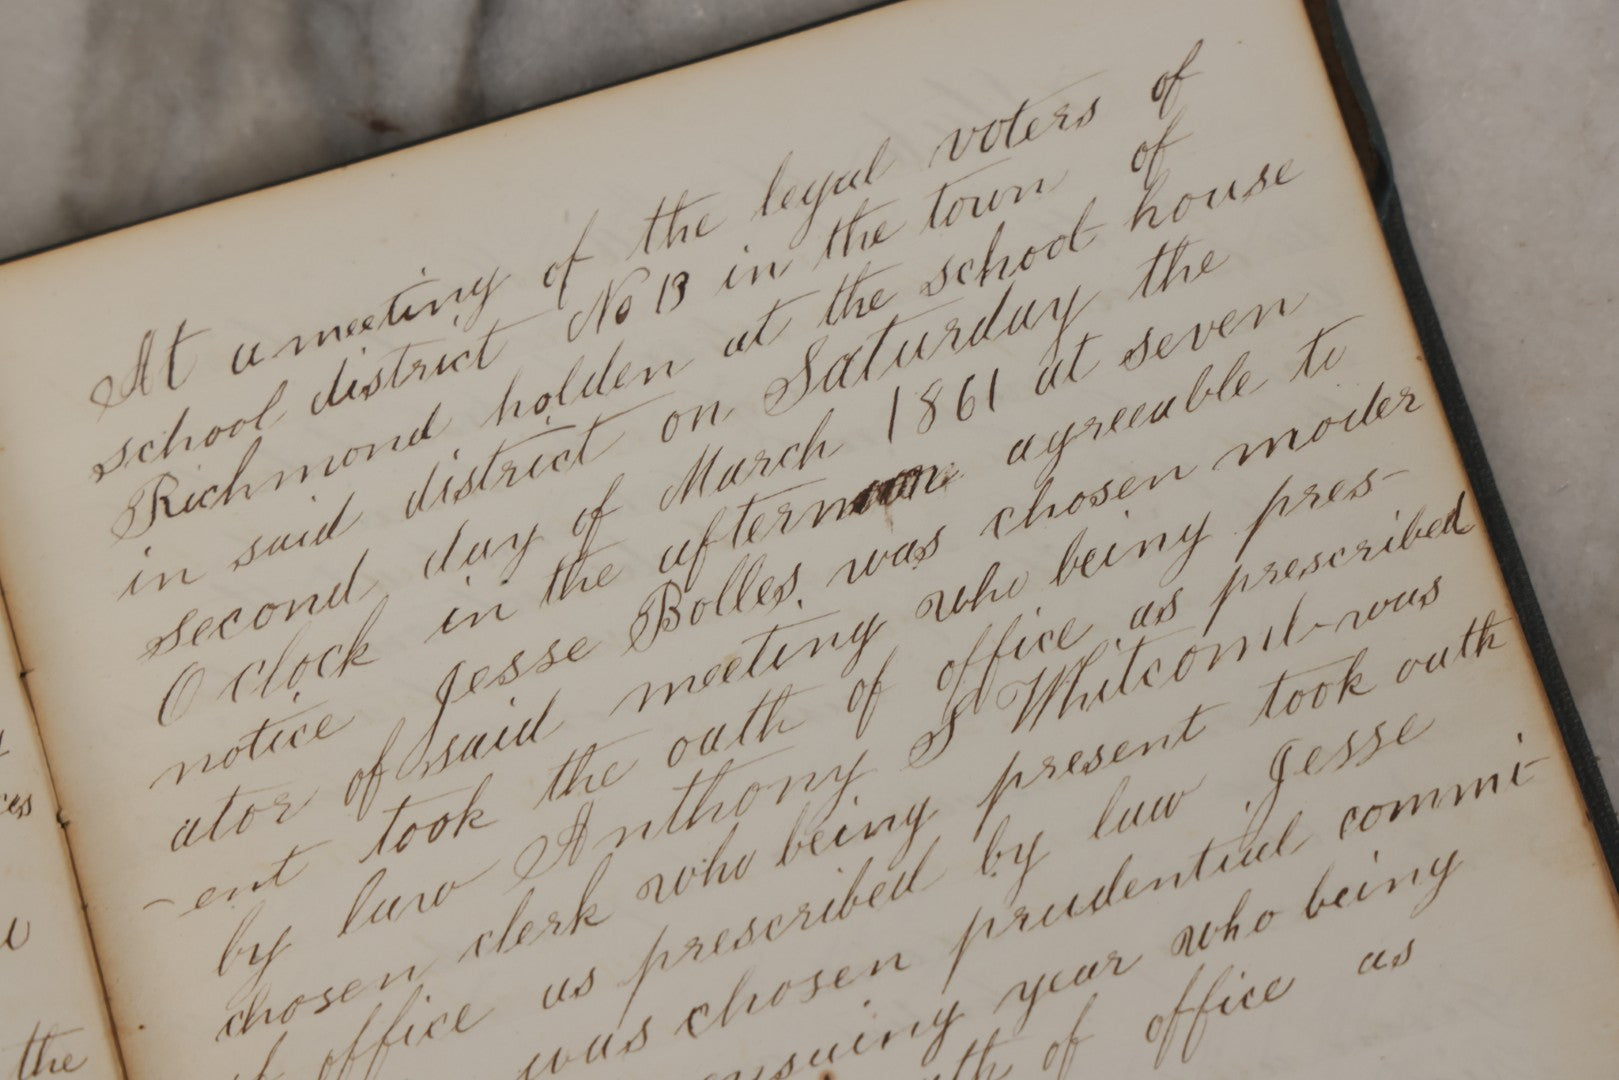 At a meeting of the legal voters of
school district No 13 in the town of
Richmond holden at the school house
in said district on Saturday the
second day of March 1861 at seven
O clock in the afternoon agreeable to
notice Jesse Bolles was chosen moder
ator of said meeting who being pres-
-ent took the oath of office as prescribed
by law Anthony S Whitcomb was
chosen clerk who being present took oath
of office as prescribed by law Jesse
was chosen prudential commi-
ensuing year who being
of office as
the